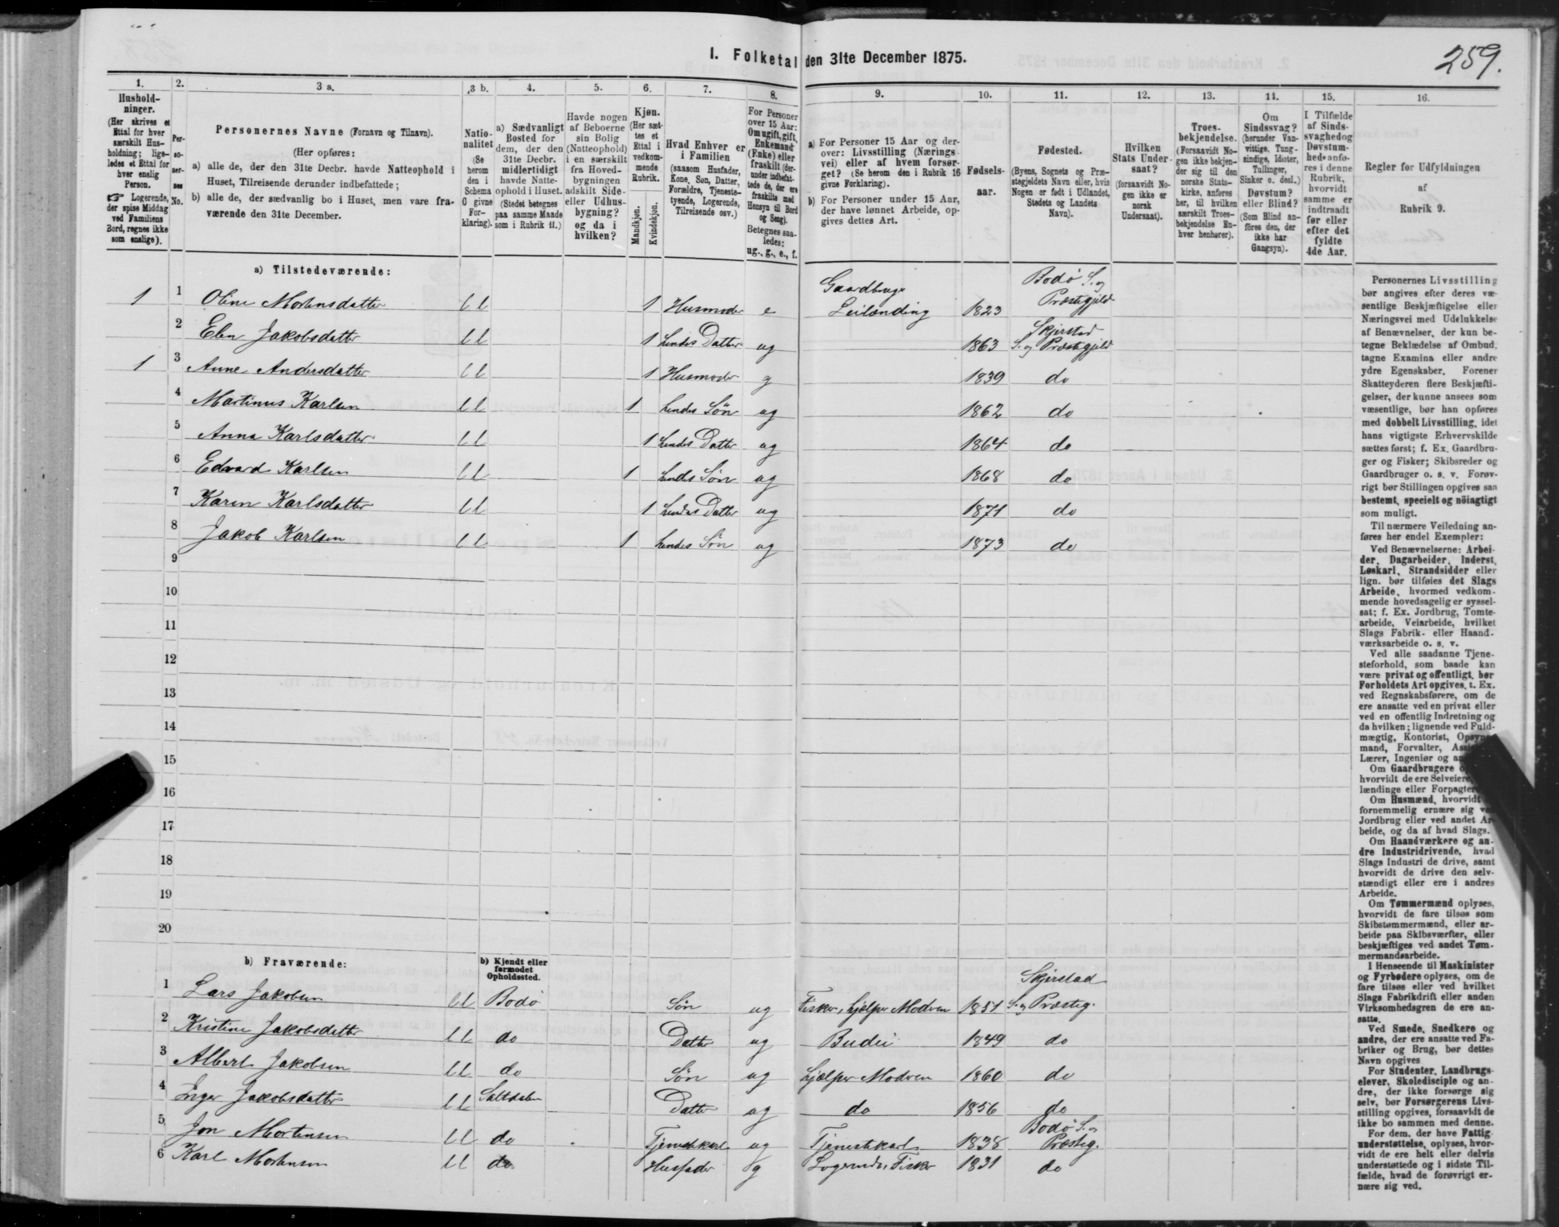 I. Folketal den 31te December 1875.
259.
1. 2. 3 a. 3 b. 4. 5. 6. 7. 8. 9. 10. 11. 12. 13. 14. 15. 16.
Hushold-
ninger.
(Her skrives et
Ettal for hver
særskilt Hus-
holdning; lige-
ledes et Ettal for
hver enslig
Person.
☞ Logerende,
der spise Middag
ved Familiens
Bord, regnes ikke
som enslige).
Per-
so-
ner-
nes
No.
Personernes Navne (Fornavn og Tilnavn).
(Her opføres:
a) alle de, der den 31te Decbr. havde Natteophold i
Huset, Tilreisende derunder indbefattede;
b) alle de, der sædvanlig bo i Huset, men vare fra-
værende den 31te December.
Natio-
nalitet
(Se
herom
den i
Schema
C givne
For-
klaring).
a) Sædvanligt
Bosted for
dem, der den
31te Decbr.
midlertidigt
havde Natte-
ophold i Huset.
(Stedet betegnes
paa samme Maade
som i Rubrik 11.)
Havde nogen
af Beboerne
sin Bolig
(Natteophold)
i en særskilt
fra Hoved-
bygningen
adskilt Side-
eller Udhus-
bygning?
og da i
hvilken?
Kjøn.
(Her sæt-
tes et
Ettal i
vedkom-
mende
Rubrik.
Mandkjøn.
Kvindekjøn.
Hvad Enhver er
i Familien
(saasom Husfader,
Kone, Søn, Datter,
Forældre, Tjeneste-
tyende, Logerende,
Tilreisende osv.)
For Personer
over 15 Aar:
Om ugift, gift,
Enkemand
(Enke) eller
fraskilt (der-
under indbefat-
tede de, der ere
fraskilte med
Hensyn til Bord
og Seng).
Betegnes saa-
ledes:
ug., g., e., f.
a) For Personer 15 Aar og der-
over: Livsstilling (Nærings-
vei) eller af hvem forsør-
get? (Se herom den i Rubrik 16
givne Forklaring).
b) For Personer under 15 Aar,
der have lønnet Arbeide, op-
gives dettes Art.
Fødsels-
aar.
Fødested.
(Byens, Sognets og Præ-
stegjeldets Navn eller, hvis
Nogen er født i Udlandet,
Stedets og Landets
Navn).
Hvilken
Stats Under-
saat?
(forsaavidt No-
gen ikke er
norsk
Undersaat).
Troes-
bekjendelse.
(Forsaavidt No-
gen ikke bekjen-
der sig til den
norske Stats-
kirke, anføres
her, til hvilken
særskilt Troes-
bekjendelse En-
hver henhører).
Om
Sindssvag?
(herunder Van-
vittige, Tung-
sindige, Idioter,
Tullinger,
Sinker o. desl.)
Døvstum?
eller Blind?
(Som Blind an-
føres den, der
ikke har
Gangsyn).
I Tilfælde
af Sinds-
svaghed og
Døvstum-
hed anfø-
res i denne
Rubrik,
hvorvidt
samme er
indtraadt
før eller
efter det
fyldte
4de Aar.
Regler før Udfyldningen
af
Rubrik 9.
a) Tilstedeværende:
1 1 Oline Mortensdatter ll 1 Husmoder e Gaardbruger Leilænding 1823 Bodø S. og Præstegjeld
2 Elen Jakobsdatter ll 1 hendes Datter ug 1863 Skjerstad S. og Præstegjeld
1 3 Anne Andersdatter ll 1 Husmoder g 1839 do
4 Martinus Karlsen ll 1 hendes Søn ug 1862 do
5 Anna Karlsdatter ll 1 hendes Datter ug 1864 do
6 Edvard Karlsen ll 1 hendes Søn ug 1868 do
7 Karen Karlsdatter ll 1 hendes Datter ug 1871 do
8 Jakob Karlsen ll 1 hendes Søn ug 1873 do
9
10
11
12
13
14
15
16
17
18
19
20
b) Fraværende:
b) Kjendt eller
formodet
Opholdssted.
1 Lars Jakobsen ll Bodø Søn ug Fisker, hjælper Modren 1851 Skjerstad S. og Præsteg.
2 Kristine Jakobsdatter ll do Datter ug Budei 1849 do
3 Albert Jakobsen ll do Søn ug hjælper Modren 1860 do
4 Inger Jakobsdatter ll Saltdalen Datter ug do 1856 do
5 Jon Mortensen ll do Tjenestekarl ug Tjenestekarl 1838 Bodø S. og Præsteg.
6 Karl Mortensen ll do Husfader g Logerende, Fisker 1831 do
Personernes Livsstilling
bør angives efter deres væ-
sentlige Beskjæftigelse eller
Næringsvei med Udelukkelse
af Benævnelser, der kun be-
tegne Beklædelse af Ombud,
tagne Examina eller andre
ydre Egenskaber. Forener
Skatteyderen flere Beskjæfti-
gelser, der kunne ansees som
væsentlige, bør han opføres
med dobbelt Livsstilling, idet
hans vigtigste Erhvervskilde
sættes først; f. Ex. Gaardbru-
ger og Fisker; Skibsreder og
Gaardbruger o. s. v. Forøv-
rigt bør Stillingen opgives saa
bestemt, specielt og nöiagtigt
som muligt.
Til nærmere Veiledning an-
føres her endel Exempler:
Ved Benævnelserne: Arbei-
der, Dagarbeider, Inderst,
Løskarl, Strandsidder eller
lign. bør tilføies det Slags
Arbeide, hvormed vedkom-
mende hovedsagelig er syssel-
sat; f. Ex. Jordbrug, Tomte-
arbeide, Veiarbeide, hvilket
Slags Fabrik- eller Haand-
værksarbeide o. s. v.
Ved alle saadanne Tjene-
steforhold, som baade kan
være privat og offentligt, bør
Forholdets Art opgives, t. Ex.
ved Regnskabsførere, om de
ere ansatte ved en privat eller
ved en offentlig Indretning og
da hvilken; lignende ved Fuld-
mægtig, Kontorist,
mand, Forvalter,
Lærer, Ingeniør og
Om Gaardbrugere
hvorvidt de ere Selveiere,
lændinge eller Forpagtere
Om Husmænd, hvorvidt
fornemmelig ernære sig
Jordbrug eller ved andet Ar-
beide, og da af hvad Slags.
Om Haandværkere og an-
dre Industridrivende, hvad
Slags Industri de drive, samt
hvorvidt de drive den selv-
stændigt eller ere i andres
Arbeide.
Om Tømmermænd oplyses,
hvorvidt de fare tilsøs som
Skibstømmermænd, eller ar-
beide paa Skibsværfter, eller
beskjæftiges ved andet Tøm-
mermandsarbeide.
I Henseende til Maskinister
og Fyrbødere oplyses, om de
fare tilsøs eller ved hvilket
Slags Fabrikdrift eller anden
Virksomhedsgren de ere an-
satte.
Ved Smede, Snedkere og
andre, der ere ansatte ved Fa-
briker og Brug, bør dettes
Navn opgives
For Studenter, Landbrugs-
elever, Skoledisciple og an-
dre, der ikke forsørge sig
selv, bør Forsørgerens Livs-
stilling opgives, forsaavidt de
ikke bo sammen med denne.
For dem, der have Fattig-
understøttelse, oplyses, hvor-
vidt de ere helt eller delvis
understøttede og i sidste Til-
fælde, hvad de forøvrigt er-
nære sig ved.